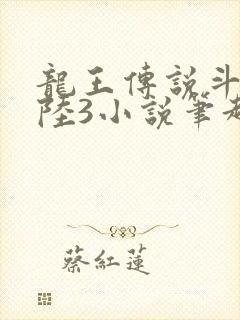 龍王傳說斗
陸3小說筆趣
蔡紅蓮